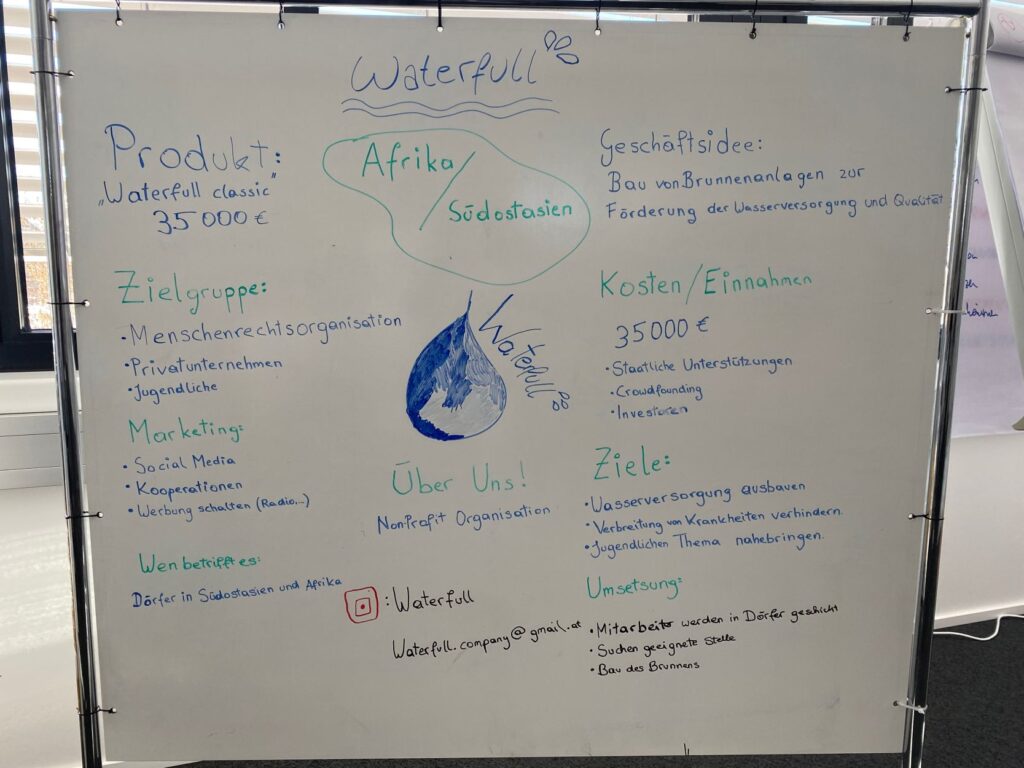 Waterfull
Produkt:
„Waterfull classic"
35 000 €
Afrika/
Südostasien
Geschäftsidee:
Bau von Brunnenanlagen zur
Förderung der Wasserversorgung und Qualität
Zielgruppe:
• Menschenrechtsorganisation
• Privatunternehmen
• Jugendliche
Marketing:
• Social Media
• Kooperationen
• Werbung schalten (Radio...)
Wen betrifft es:
Dörfer in Südostasien und Afrika
Waterfull
Über Uns!
Non-Profit Organisation
: Waterfull
Waterfull.company@gmail.at
Kosten/Einnahmen
35000 €
• Staatliche Unterstützungen
• Crowdfounding
• Investoren
Ziele:
• Wasserversorgung ausbauen
• Verbreitung von Krankheiten verhindern.
• Jugendlichen Thema nahebringen.
Umsetsung:
• Mitarbeiter werden in Dörfer geschickt
• Suchen geeignete Stelle
• Bau des Brunnens